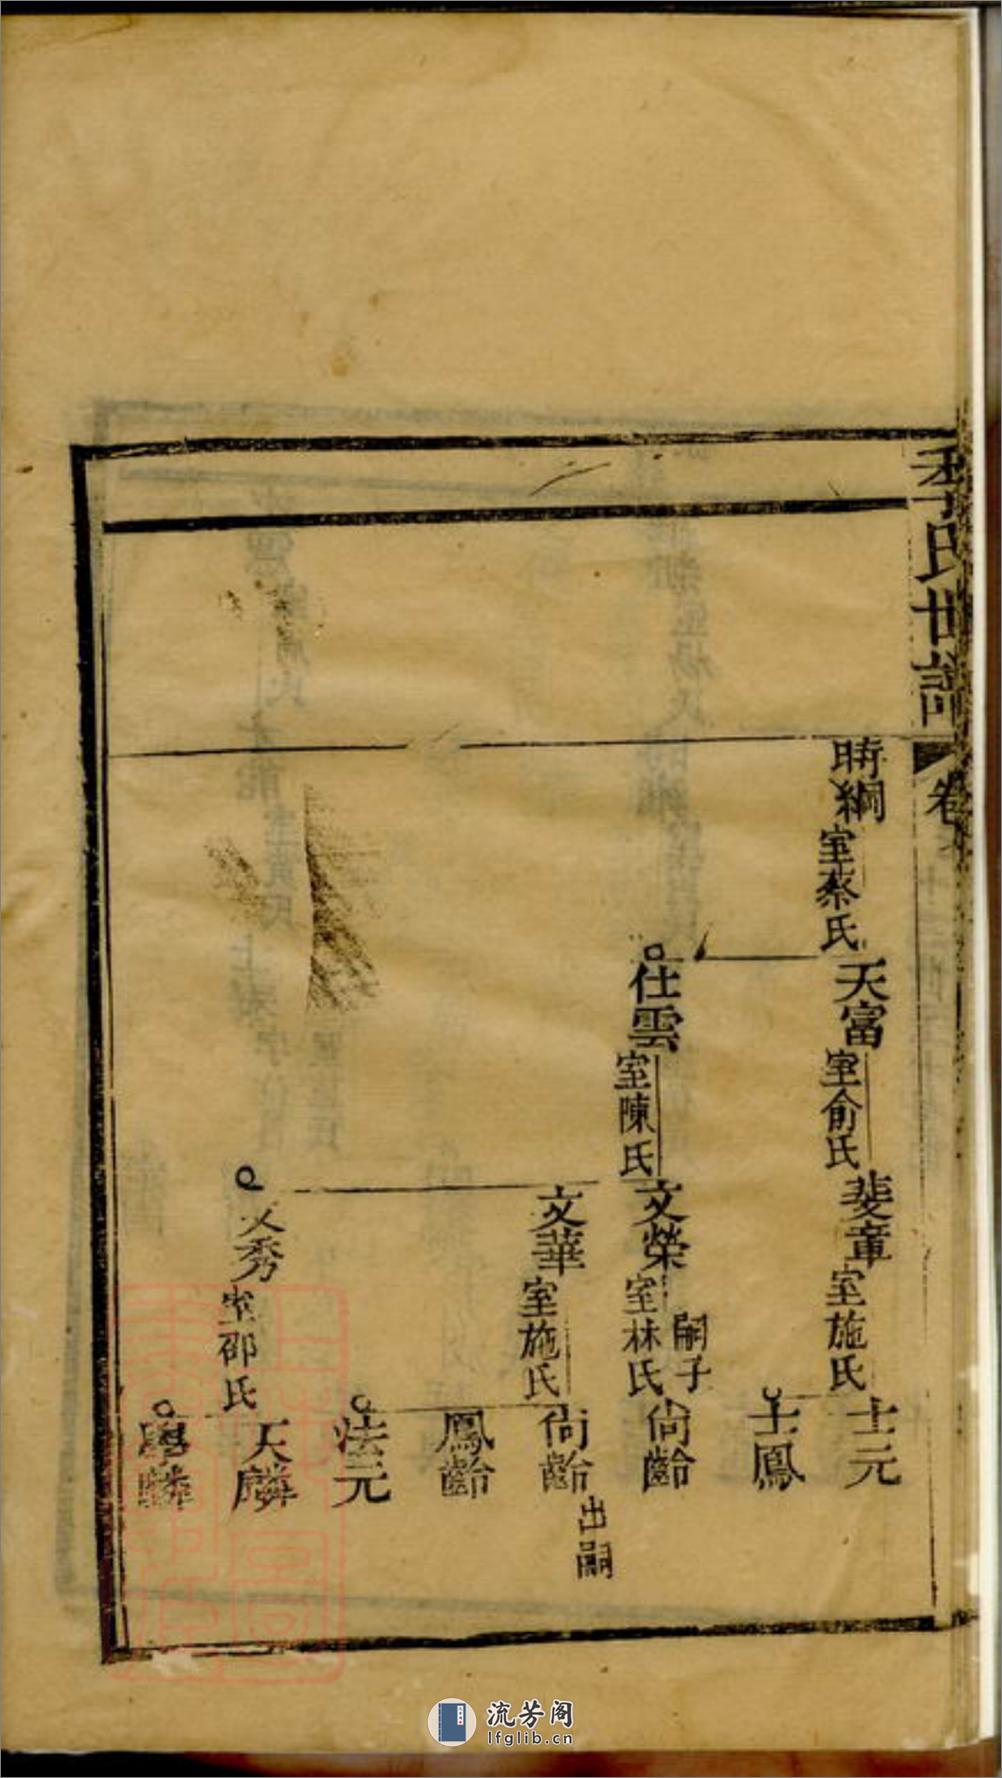 李氏世譜
卷
時綱 室蔡氏
天富 室俞氏
斐章 室施氏
士元
士鳳
仕雲 室陳氏
文榮 室林氏 嗣子
尙齡
文華 室施氏
尙齡 出嗣
鳳齡
法元
文秀 室邵氏
天麟
流芳阁
lfglib.cn